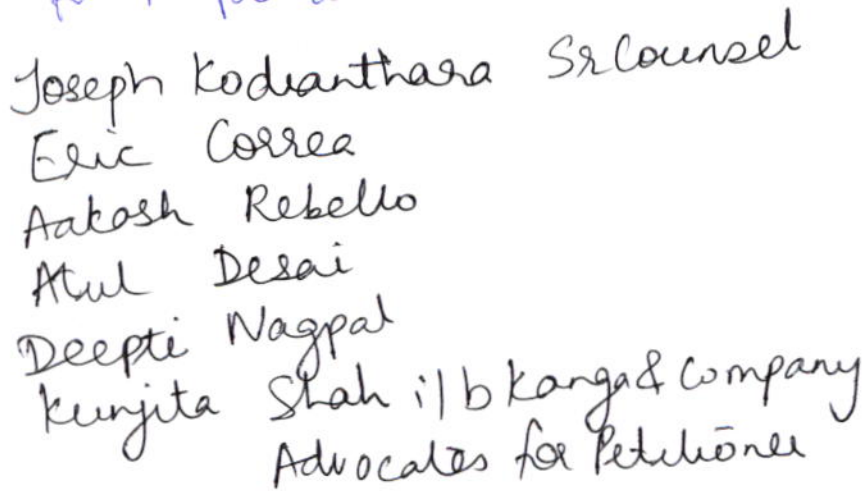 Joseph Kodianthara Sr Counsel
Eric Correa
Aakash Rebello
Atul Desai
Deepti Nagpal
Kunjita Shah i/b Kanga & Company
Advocates for Petitioner